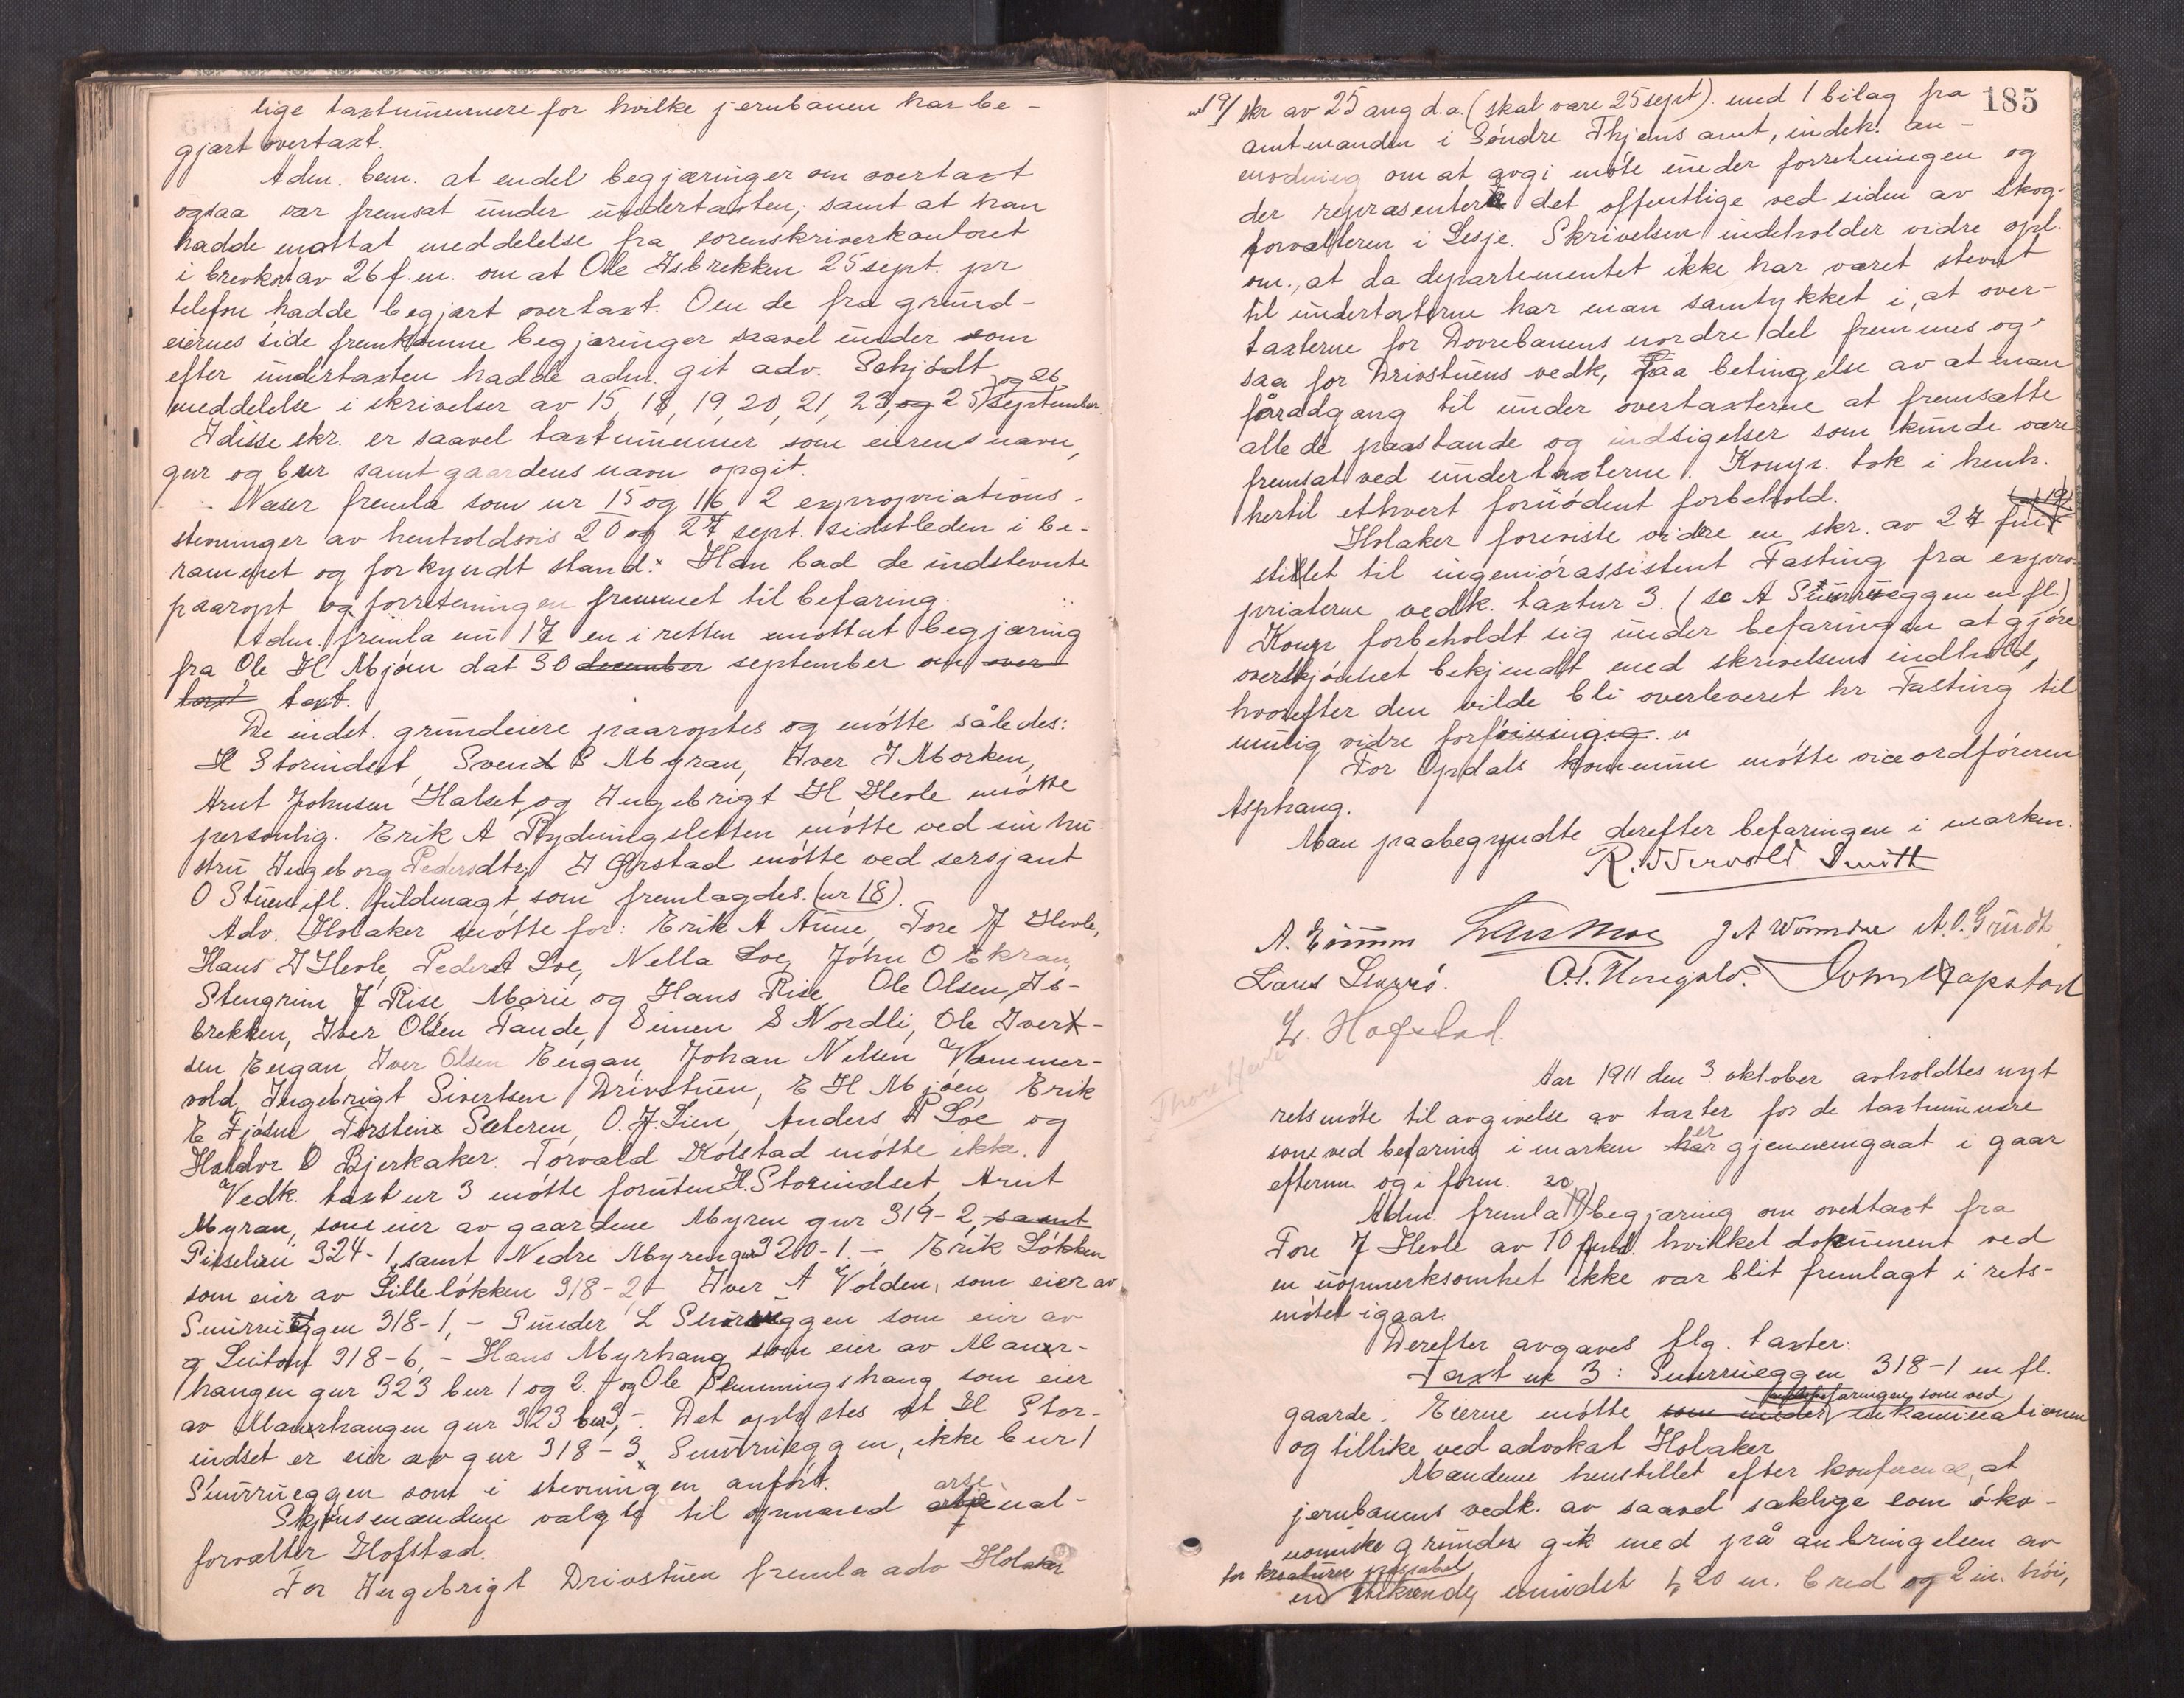 lige taxtnummere for hvilke jernbanen har be-
gjært overtaxt.
Adm. bem. at endel begjæringer om overtaxt
ogsaa var fremsat under undertaxten, samt at han
hadde mottat meddelelse fra sorenskriverkontoret
i brevkort av 26 f.m. om at Ole Isbrekken 25 sept. pr
telefon hadde begjært overtaxt. Om de fra grund-
eiernes side fremkomne begjæringer saavel under som
efter undertaxten hadde adm. git adv. Schjödt
meddelelse i skrivelser av 15, 18, 19, 20, 21, 23, og 25 og 26 september.
I disse skr. er saavel taxtnummer som eierens navn,
gnr og bnr samt gaardens navn opgit.
Næser fremla som nr 15 og 16 2 expropriations-
stevninger av henholdsvis 20 og 27 sept. sidstleden i be-
rammet og forkyndt stand. Han bad de indstevnte
paaropt og forretningen fremmet til befaring.
Adm. fremla nu 17 en i retten mottat begjæring
fra Ole H Mjøen dat 30 december september om over
taxt taxt.
De indst. grundeiere paaroptes og møtte således:
H Storindset, Svend B Myran, Iver I Morken,
Arnt Johnsen Halset og Ingebrigt H Hevle møtte
personlig. Erik A Rydningsletten møtte ved sin hu-
stru Ingeborg Pedersdtr, I Ørstad møtte ved sersjant
O Stuen ifl. fuldmagt som fremlagdes. (nr 18).
Adv. Holaker møtte for: Erik A Aune, Tore J Hevle,
Hans J Hevle, Peder A Loe, Nella Loe, John O Ekran,
Stengrim J Rise, Marie og Hans Rise, Ole Olsen Is-
brekken, Iver Olsen Tande, Simen S Nordli, Ole Ivert-
sen Engan, Iver Olsen Engan, Johan Nilsen Hammer-
vold, Ingebrigt Sivertsen Drivstuen, E H Mjøen, Erik
E Fjøsne Torstein Sæteren, O. J. Lien, Anders A Loe og
Haldor O Bjerkaker. Torvald Kolstad møtte ikke.
Vedk. taxt nr 3 møtte foruten H. Storindset Arnt
Myran, som eier av gaardene Myren gnr 319-2, samt
324-1, samt Nedre Myren gnr 320-1. - Erik Løkken
som eier av Lilleløkken 318-2 - Iver A Volden, som eier av
Snurrueggen 318-1, - L Snurrueggen som eier av
318-6, - Hans Myrhaug som eier av Maur-
haugen gnr 323 bnr 1 og 2. og Ole Plumingshaug som eier
av Maurhaugen gnr 323 bnr 3, -. Det oplystes at H Stor-
indset er eier av gnr 318-3 Snurrueggen, ikke bnr 1
Snurrueggen som i stevningen anført.
Skjønsmændene valgte til opmand arsenal-
forvalter Hofstad.
For Ingebrigt Drivstuen fremla adv Holaker
185
19/ skr av 25 aug d.a. (skal være 25 sept). med 1 bilag fra
amtmanden i Søndre Thjems amt, indeh. an-
modning om at avgi møte under forretningen og
der repræsentere det offentlige ved siden av skog-
forvalteren i Lesje. Skrivelsen indeholder vidre opl.
om, at da departementet ikke har været stevnt
til undertaxterne har man samtykket i, at over-
taxterne for Dovrebanens nordre del fremmes og-
saa for Drivstuens vedk, paa betingelse av at man
får adgang til under overtaxterne at fremsatte
alle de paastande og indsigelser som kunde være
fremsat ved undertaxterne. Kompr. tok i henh.
hertil ethvert fornødent forbehold.
Holaker foreviste vidre en skr. av 27 juni
stillet til ingeniørassistent Fasting fra expro-
priaterne vedk. taxtnr 3. (se A Snurrueggen m fl.)
Kompr forbeholdt sig under befaringen at gjøre
overskjønnet bekjendt med skrivelsens indhold,
hvorefter den vilde bli overleveret hr Fasting til
mulig vidre forføining.
For Opdals kommune møtte viceordføreren
Asphaug.
Man paabegyndte derefter befaringen i marken.
R. Wervold Smitt
Lars Moe A. O. Grindt
Lars
L. Hofstad.
Thore Hevle
Aar 1911 den 3 oktober avholdtes nyt
retsmøte til avgivelse av taxter for de taxtnummere
som ved befaring i marken har er gjennemgaat i gaar
efterm. og i form.
Adm. fremla begjæring om overtaxt fra
Tore J Hevle av 10 hvilket dokument ved
en uopmerksomhet ikke var blit fremlagt i rets-
møtet igaar.
Derefter avgaves flg. taxter:
Taxt nr 3: Snurrueggen 318-1 m fl.
gaarde. Eierne møtte som under befaringen som ved
og tillike ved advokat Holaker
Mændene henstillet efter konference, at
jernbanens vedk. av saavel saklige som øko-
nomiske grunder gik med på anbringelsen av
for kreaturer passabel
en mindst 1,20 m. bred og 2 m. høi,